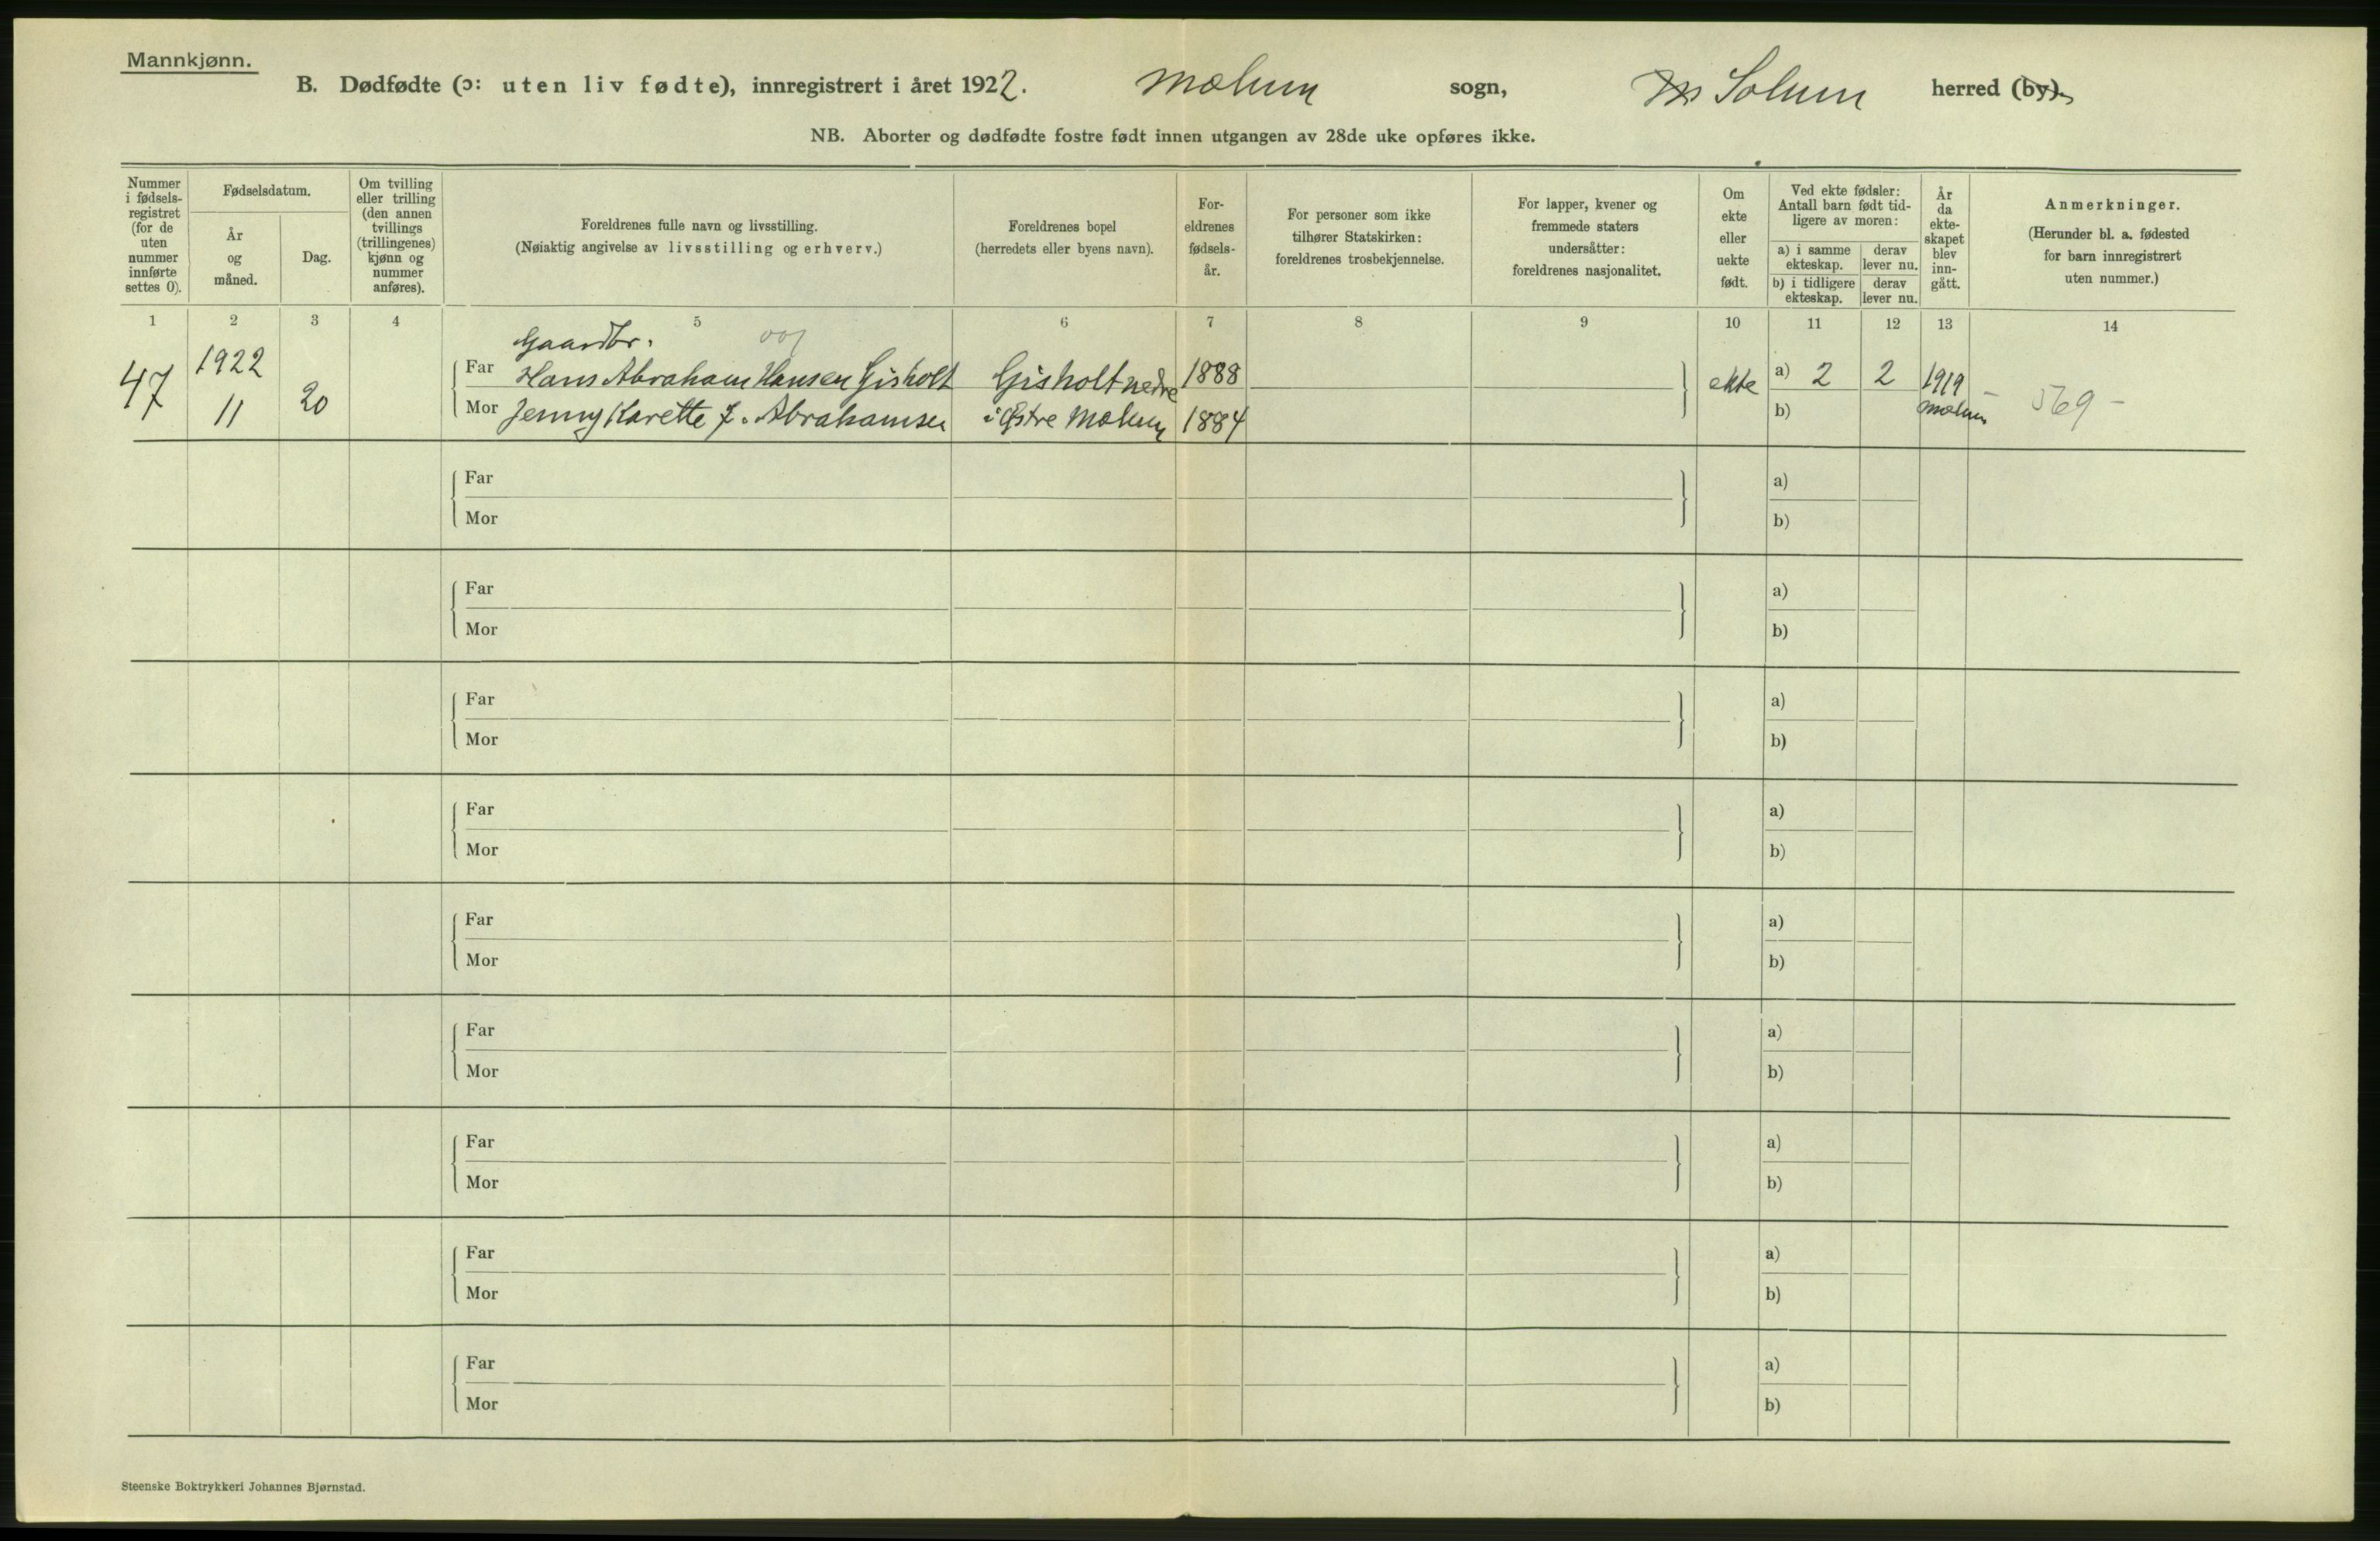 Mannkjønn.
B. Dødfødte (ɔ: uten liv fødte), innregistrert i året 1922. Mælum sogn, Solum herred (by).
NB. Aborter og dødfødte fostre født innen utgangen av 28de uke opføres ikke.
Nummer i fødsels-registret (for de uten nummer innførte settes 0).
Fødselsdatum.
År og måned.
Dag.
Om tvilling eller trilling (den annen tvillings (trillingenes) kjønn og nummer anføres).
Foreldrenes fulle navn og livsstilling.
(Nøiaktig angivelse av livsstilling og erhverv.)
Foreldrenes bopel
(herredets eller byens navn).
For-eldrenes fødsels-år.
For personer som ikke tilhører Statskirken: foreldrenes trosbekjennelse.
For lapper, kvener og fremmede staters undersåtter: foreldrenes nasjonalitet.
Om ekte eller uekte født.
Ved ekte fødsler: Antall barn født tid-ligere av moren:
a) i samme ekteskap.
derav lever nu.
b) i tidligere ekteskap.
derav lever nu.
År da ekte-skapet blev inn-gått.
Anmerkninger.
(Herunder bl. a. fødested for barn innregistrert uten nummer.)
1 2 3 4 5 6 7 8 9 10 11 12 13 14
Gaardbr. 001
47 1922 20 Far Hans Abraham Hansen Gisholt Gisholt nedre 1888 ekte a) 2 2 1919 –
11 Mor Jenny Karette f. Abrahamsen i Østre Mælum 1884 b) Mælum 569 –
Far a)
Mor b)
Far a)
Mor b)
Far a)
Mor b)
Far a)
Mor b)
Far a)
Mor b)
Far a)
Mor b)
Far a)
Mor b)
Far a)
Mor b)
Far a)
Mor b)
Steenske Boktrykkeri Johannes Bjørnstad.